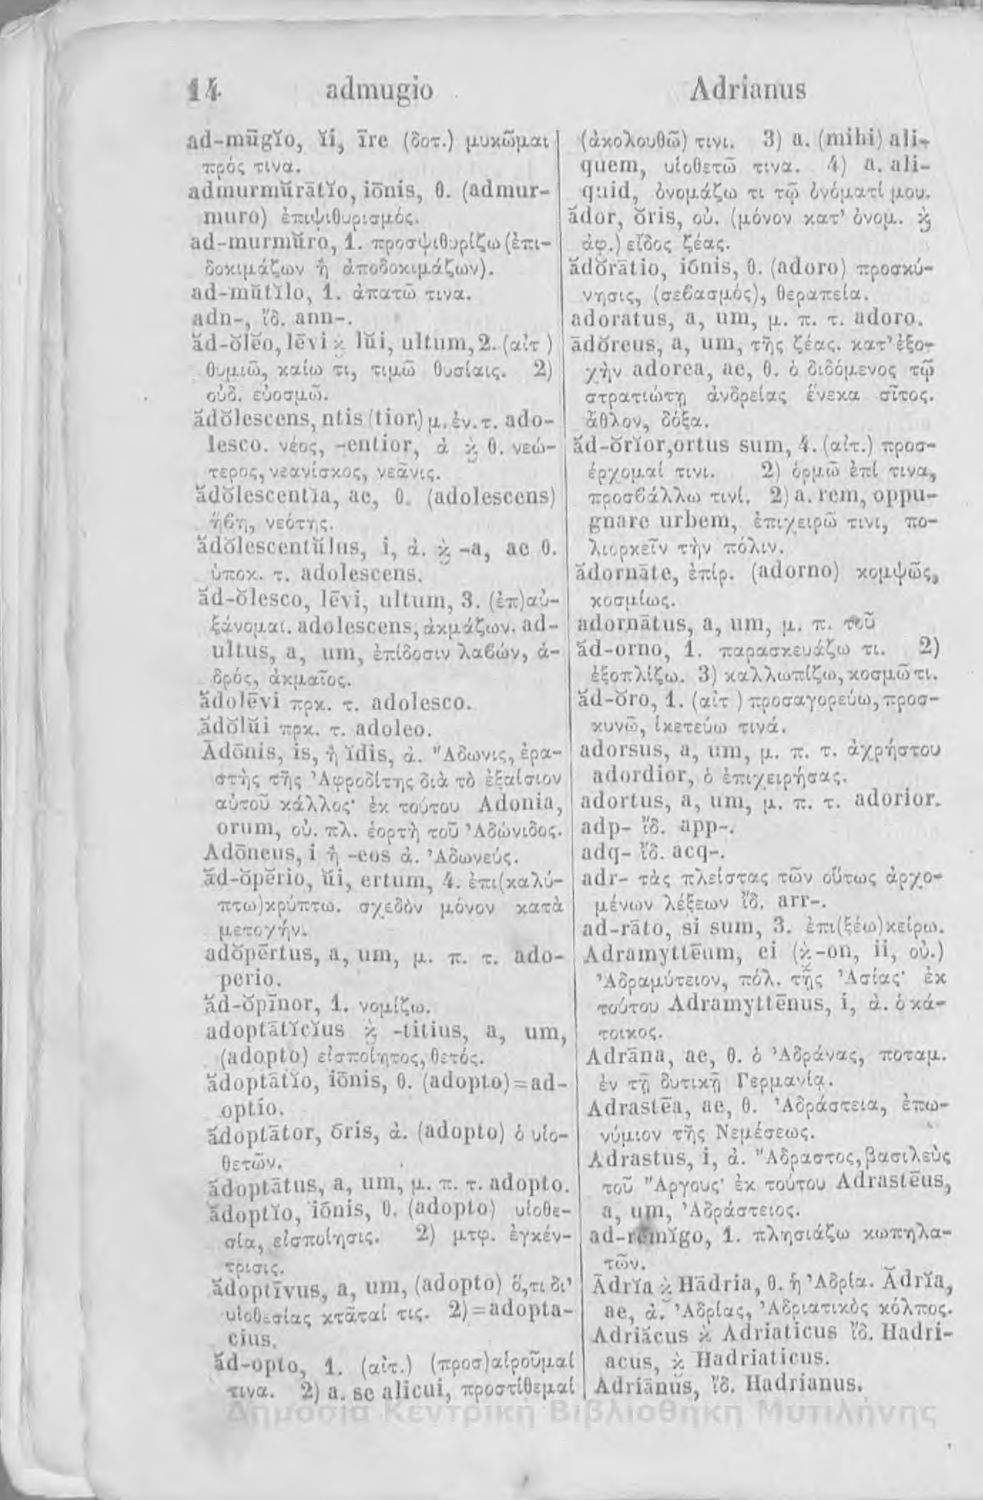 14 admugio Adrianus
ad-mūgĭo, ĭi, īre (δοτ.) μυκῶμαι
πρός τινα.
admurmŭrātĭo, iōnis, θ. (admur-
muro) ἐπιψιθυρισμός.
ad-murmŭro, 1. προσψιθυρίζω (ἐπι-
δοκιμάζων ἢ ἀποδοκιμάζων).
ad-mŭtĭlo, 1. ἀπατῶ τινα.
adn-, ἴδ. ann-.
ăd-ŏlĕo, lēvi ϗ lŭi, ultum, 2. (αἰτ )
θυμιῶ, καίω τι, τιμῶ θυσίαις. 2)
οὐδ. εὐοσμῶ.
ădŏlescens, ntis (tior.) μ. ἐν. τ. ado-
lesco. νέος, -entior, ἀ ϗ θ. νεώ-
τερος, νεανίσκος, νεᾶνις.
ădŏlescentĭa, ae, θ. (adolescens)
ἥβη, νεότης.
ădŏlescentŭlus, i, ἀ. ϗ -a, ae θ.
ὑποκ. τ. adolescens.
ăd-ŏlesco, lēvi, ultum, 3. (ἐπ)αὐ-
ξάνομαι. adolescens, ἀκμάζων. ad-
ultus, a, um, ἐπίδοσιν λαβών, ἁ-
δρός, ἀκμαῖος.
ădolēvi πρκ. τ. adolesco.
ădŏlŭi πρκ. τ. adoleo.
Ădōnis, is, ἢ ĭdis, ἀ. Ἄδωνις, ἐρα-
στὴς τῆς Ἀφροδίτης διὰ τὸ ἐξαίσιον
αὐτοῦ κάλλος· ἐκ τούτου Adonia,
orum, οὐ. πλ. ἑορτὴ τοῦ Ἀδώνιδος.
Adōneus, i ἢ -eos ἀ. Ἀδωνεύς.
ăd-ŏpĕrio, ŭi, ertum, 4. ἐπι(καλύ-
πτω)κρύπτω. σχεδὸν μόνον κατὰ
μετοχήν.
adŏpĕrtus, a, um, μ. π. τ. ado-
perio.
ăd-ŏpīnor, 1. νομίζω.
adoptātĭcĭus ϗ -titius, a, um,
(adopto) εἰσποίητος, θετός.
ădoptātĭo, iōnis, θ. (adopto)=ad-
optio.
ădoptātor, ōris, ἀ. (adopto) ὁ υἱο-
θετῶν.
ădoptātus, a, um, μ. π. τ. adopto.
ădoptĭo, iōnis, θ. (adopto) υἱοθε-
σία, εἰσποίησις. 2) μτφ. ἐγκέν-
τρισις.
ădoptīvus, a, um, (adopto) ὅ,τι δι'
υἱοθεσίας κτᾶταί τις. 2)=adopta-
cius.
ăd-opto, 1. (αἰτ.) (προσ)αἱροῦμαί
τινα. 2) a. se alicui, προστίθεμαί
(ἀκολουθῶ) τινι. 3) a. (mihi) ali-
quem, υἱοθετῶ τινα. 4) a. ali-
quid, ὀνομάζω τι τῷ ὀνόματί μου.
ădor, ŏris, οὐ. (μόνον κατ' ὀνομ. ϗ
ἀφ.) εἶδος ζέας.
ădŏrātio, iōnis, θ. (adoro) προσκύ-
νησις, (σεβασμός), θεραπεία.
adoratus, a, um, μ. π. τ. adoro.
ādŏreus, a, um, τῆς ζέας. κατ' ἐξο-
χὴν adorea, ae, θ. ὁ διδόμενος τῷ
στρατιώτῃ ἀνδρείας ἕνεκα σῖτος.
ἆθλον, δόξα.
ăd-ŏrĭor, ortus sum, 4. (αἰτ.) προσ-
έρχομαί τινι. 2) ὁρμῶ ἐπί τινα,
προσβάλλω τινί. 2) a. rem, oppu-
gnare urbem, ἐπιχειρῶ τινι, πο-
λιορκεῖν τὴν πόλιν.
ădornāte, ἐπίρ. (adorno) κομψῶς,
κοσμίως.
adornātus, a, um, μ. π. τοῦ
ăd-orno, 1. παρασκευάζω τι. 2)
ἐξοπλίζω. 3) καλλωπίζω, κοσμῶ τι.
ăd-ŏro, 1. (αἰτ ) προσαγορεύω, προσ-
κυνῶ, ἱκετεύω τινά.
adorsus, a, um, μ. π. τ. ἀχρήστου
adordior, ὁ ἐπιχειρήσας.
adortus, a, um, μ. π. τ. adorior.
adp- ἴδ. app-.
adq- ἴδ. acq-.
adr- τὰς πλείστας τῶν οὕτως ἀρχο-
μένων λέξεων ἴδ. arr-.
ad-rāto, si sum, 3. ἐπι(ξέω)κείρω.
Adramyttēum, ei (ϗ -on, ii, οὐ.)
Ἀδραμύτειον, πόλ. τῆς Ἀσίας· ἐκ
τούτου Adramyttēnus, i, ἀ. ὁ κά-
τοικος.
Adrāna, ae, θ. ὁ Ἀδράνας, ποταμ.
ἐν τῇ δυτικῇ Γερμανίᾳ.
Adrastēa, ae, θ. Ἀδράστεια, ἐπω-
νύμιον τῆς Νεμέσεως.
Adrastus, i, ἀ. Ἄδραστος, βασιλεὺς
τοῦ Ἄργους· ἐκ τούτου Adrastēus,
a, um, Ἀδράστειος.
ad-rēmĭgo, 1. πλησιάζω κωπηλα-
τῶν.
Ădrĭa ϗ Hādria, θ. ἡ Ἀδρία. Ădrĭa,
ae, ἀ. Ἀδρίας, Ἀδριατικὸς κόλπος.
Adriăcus ϗ Adriaticus ἴδ. Hadri-
acus, ϗ Hadriaticus.
Adriānus, ἴδ. Hadrianus.
Δημόσια Κεντρική Βιβλιοθήκη Μυτιλήνης